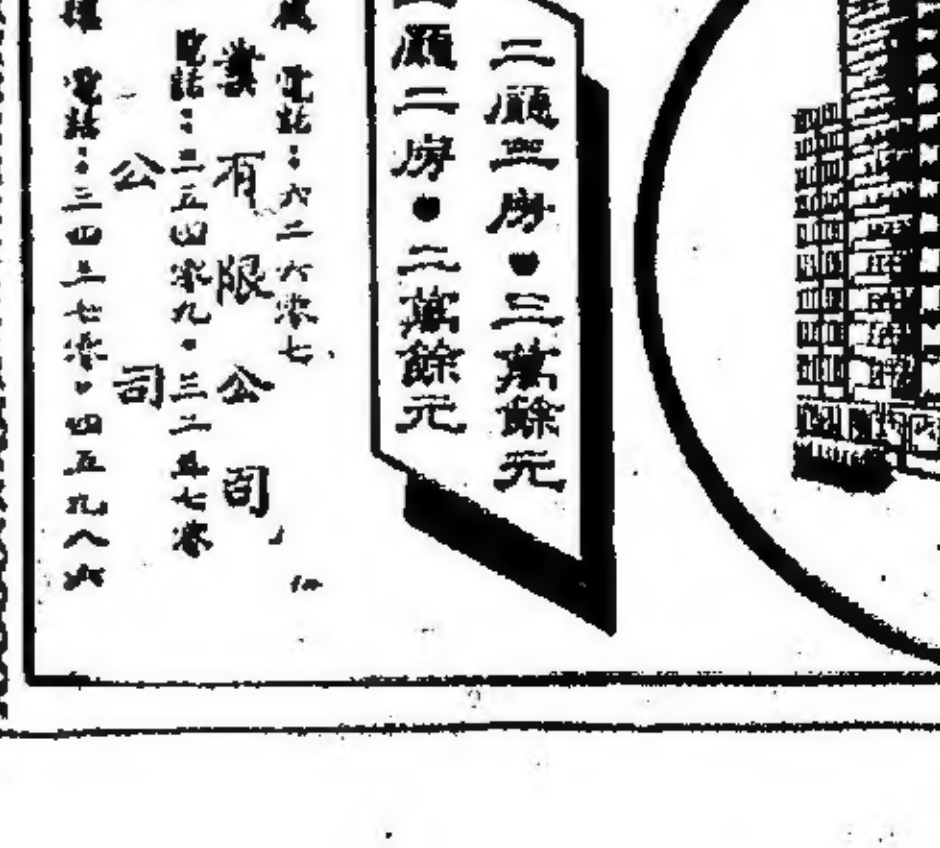 二廳三房•三萬餘元
二廳二房•二萬餘元
電話：六二六零七
業有限公司
電話：二五四零九•三二五七零
公司
電話：三四三七零•四五九八六